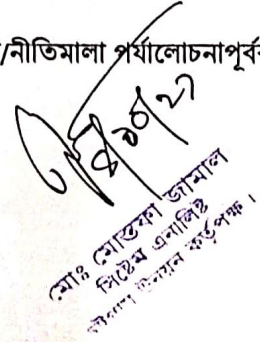 /নীতিমালা পর্যালোচনাপূর্ব
মোঃ মোস্তফা জামাল
সিস্টেম এনালিষ্ট
উন্নয়ন কর্তৃপক্ষ।